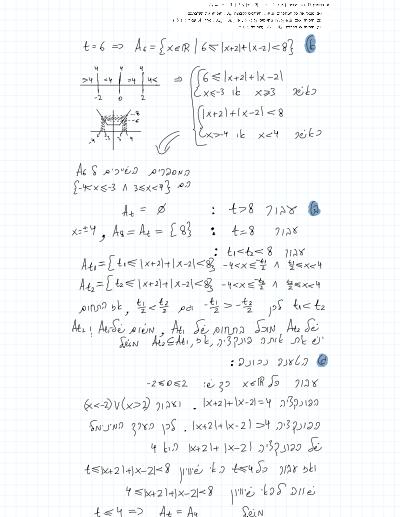 ב t=6 => A₆ = {x∈ℝ | 6 ≤ |x+2|+|x-2| < 8}
>4 4 <4 4 4<
-2 0 2
=> { 6 ≤ |x+2|+|x-2|
x≤-3 או x≥3 כאשר
{ |x+2|+|x-2| < 8
x>-4 או x<4 כאשר
-8
-6
-4 -3 3 4
המספרים השייכים ל A₆
הם {-4<x≤-3 ∧ 3≤x<4}
עבור t>8 : A_t = ∅
עבור t=8 : x=±4, A₈ = A_t = {8}
עבור t₁<t₂<8 :
A_t₁ = {t₁ ≤ |x+2|+|x-2| < 8} -4<x≤-t₁/2 ∧ t₁/2≤x<4
A_t₂ = {t₂ ≤ |x+2|+|x-2| < 8} -4<x≤-t₂/2 ∧ t₂/2≤x<4
t₁<t₂ לכן -t₁/2 > -t₂/2 וגם t₁/2 < t₂/2, אז התחום
של A_t₂ מוכל בתחום של A_t₁. משום של A_t₁ ו A_t₂
יש את אותה פונקציה, אז A_t₂ ⊆ A_t₁, משל
ד הטענה נכונה:
עבור כל x∈ℝ כך ש -2≤0≤2
הפונקציה |x+2|+|x-2| = 4. ועבור (x<-2)∨(x>2)
הפונקציה |x+2|+|x-2| > 4. לכן הערך המינימלי
של הפונקציה |x+2|+|x-2| הוא 4
ואז עבור כל t≤4 האי שוויון t≤|x+2|+|x-2|<8
שווה לאי שוויון 4≤|x+2|+|x-2|<8
t≤4 => A_t = A₄ משל